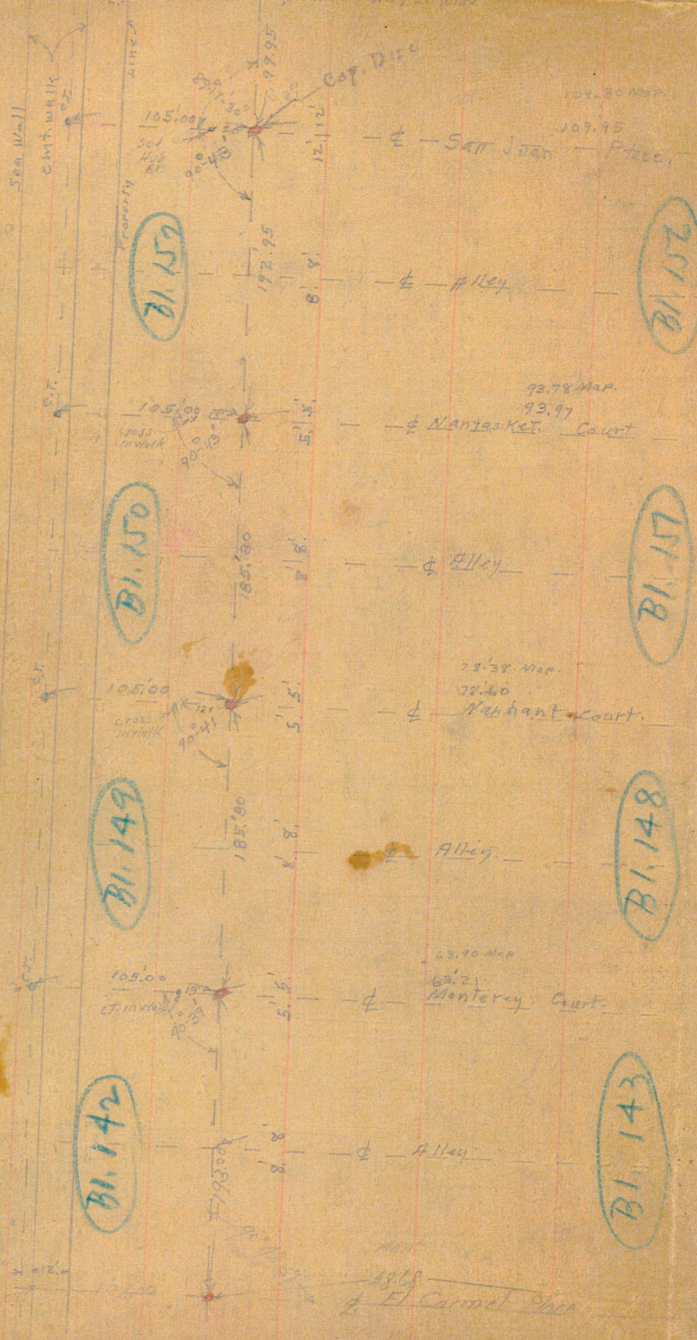 Sea Wall
Cmt. walk
C.T.
Line
Property
99.95
Cop. Disc
89°-47'-30"
105.00
Set
Hub
12' 12'
109.80 Map.
109.95
℄ San Juan Place.
Bl. 159
192.95
8' 8'
℄ Alley
Bl. 152
C.T.
105.00
cross
in walk
5' 5'
93.78 Map.
93.97
℄ Nantasket Court
Bl. 150
185.80
8' 8'
℄ Alley
Bl. 151
C.T.
105.00
cross
in walk
12"
90°-41'
5' 5'
78.38 Map.
78.60
℄ Nahant Court.
Bl. 149
185.80
8' 8'
℄ Alley
Bl. 148
C.T.
105.00
C.T. in walk
90°-39'
5' 5'
℄ Monterey Court.
Bl. 142
193.00
8' 8'
℄ Alley
Bl. 143
12'
48.68
℄ El Carmel Place